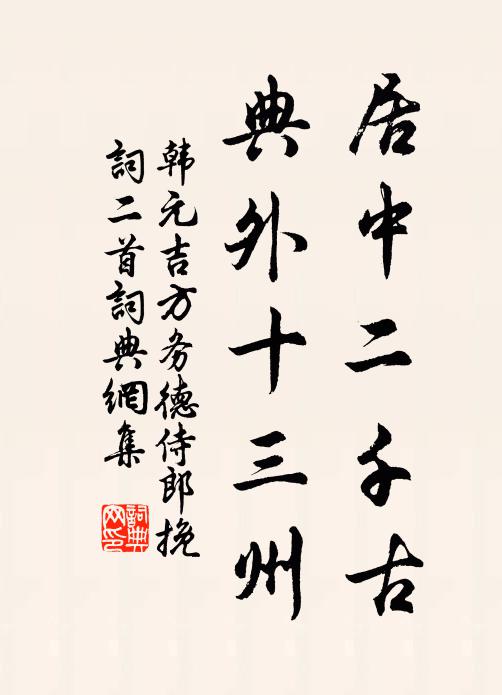 居中二千古
典外十三州
韩元吉方务德侍郎挽
詞二首詞典網集
詞典网印